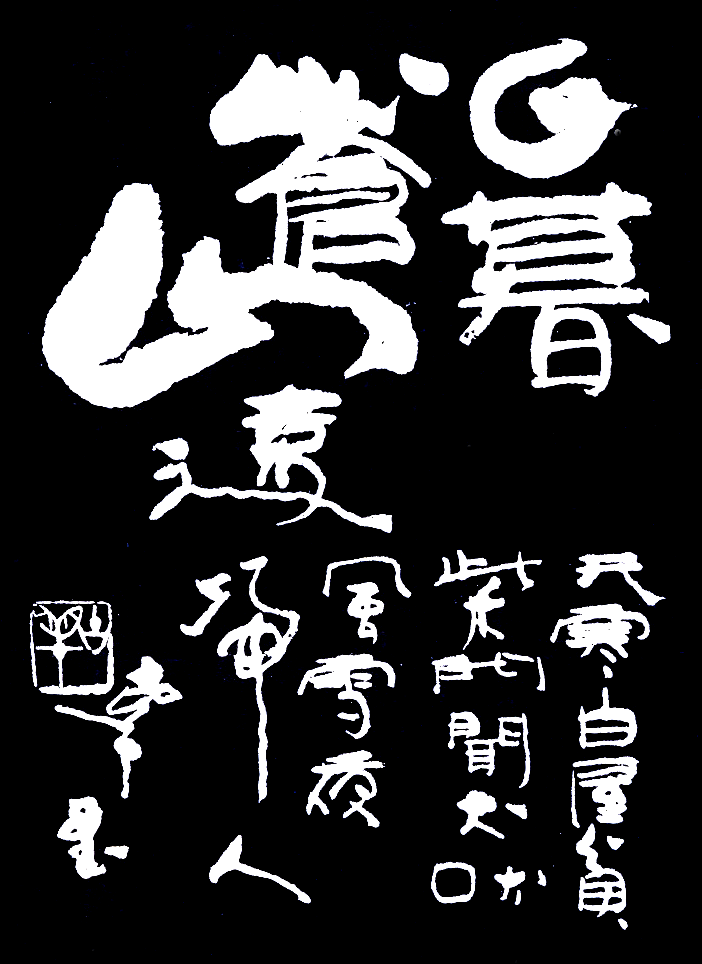 日暮
蒼山遠
天寒白屋貧
柴門聞犬吠
風雪夜
歸人